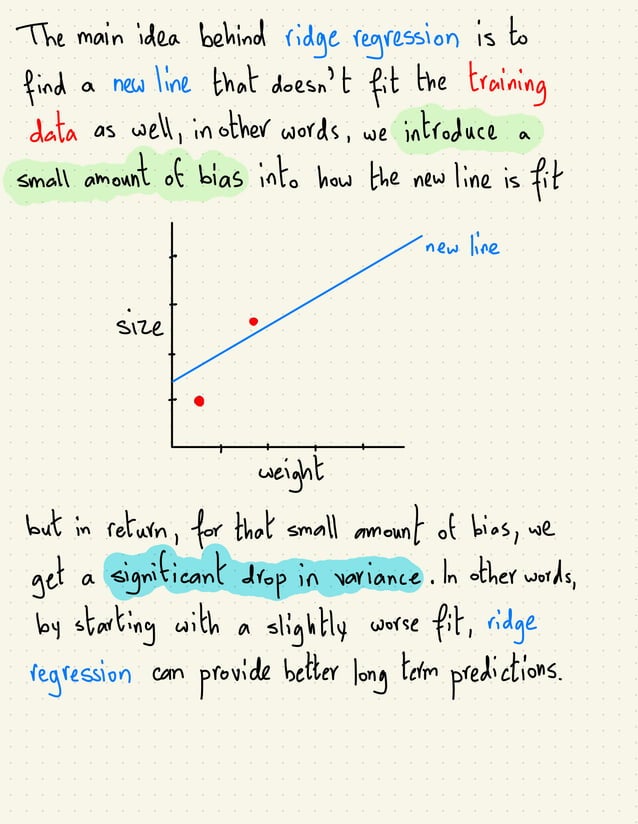 The main idea behind ridge regression is to
find a new line that doesn't fit the training
data as well, in other words, we introduce a
small amount of bias into how the new line is fit
new line
size
weight
but in return, for that small amount of bias, we
get a significant drop in variance. In other words,
by starting with a slightly worse fit, ridge
regression can provide better long term predictions.